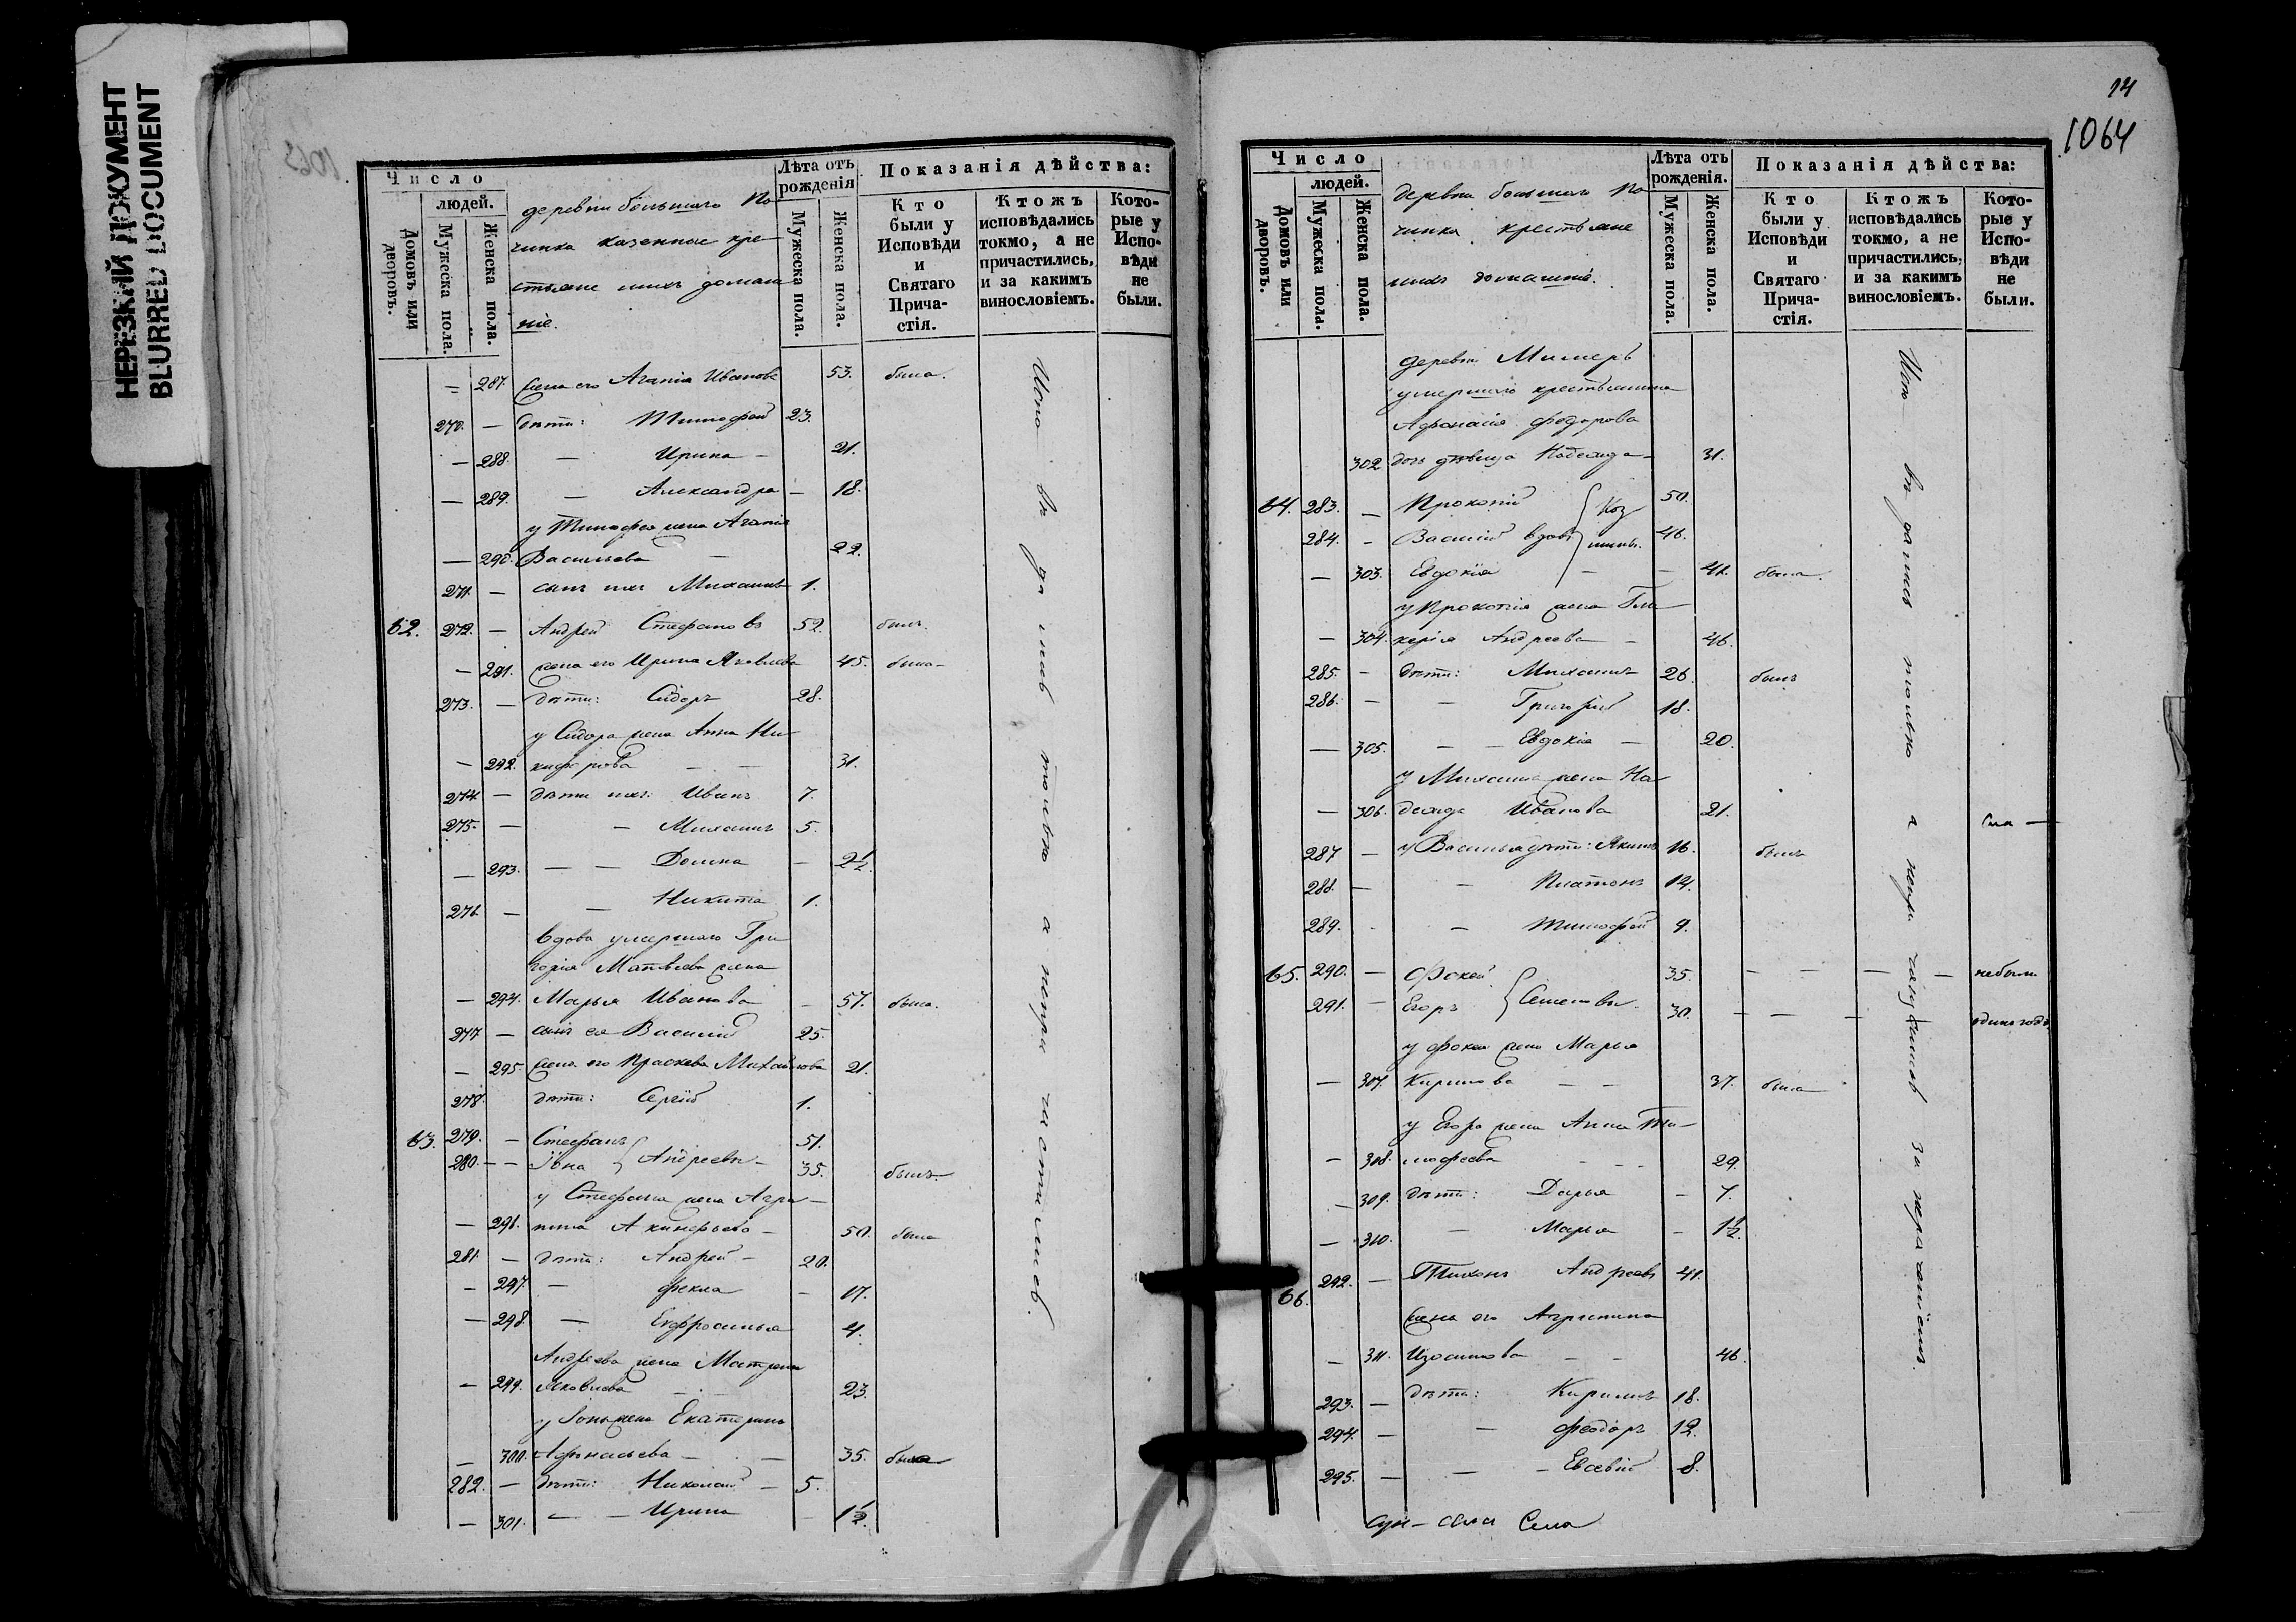 НЕРЕЗКИЙ ДОКУМЕНТ
BLURRED DOCUMENT
Число
людей.
Домовъ или дворовъ.
Мужеска пола.
Женска пола.
деревни большаго По
чинка казенные кре
стьяне и ихъ домаш
ніе.
Лѣта отъ рожденія
Мужеска пола.
Женска пола.
Показанія дѣйства:
Кто были у Исповѣди и Святаго Причастія.
Ктожъ исповѣдались токмо, а не причастились, и за какимъ винословіемъ.
Которые у Исповѣди не были.
— 287. жена его Агапія Иванова 53. была.
270. — дѣти: Тимофей 23.
— 288. — Ирина — 21.
— 289. — Александра — 18.
у Тимофея жена Агапія
— 290. Васильева — 22.
271. — сынъ ихъ Михаилъ 1.
62. 272. — Андрей Стефановъ 52. былъ.
— 291. жена его Ирина Яковлева 45. была —
273. — дѣти: Сидоръ 28.
у Сидора жена Анна Ни-
— 292. кифорова — — 31.
274. — дѣти ихъ: Иванъ 7.
275. — — Михаилъ 5.
— 293. — — Домна — 2 1/2.
276. — — Никита 1.
вдова умершаго Гри
горія Матвѣева жена
— 294. Марья Иванова — 57. была.
277. — сынъ ея Василій 25.
— 295. жена его Прасковья Михайлова 21.
278. дѣти: Сергій 1.
63. 279. — Стефанъ 51.
280. — — Іона } Андреевы — 35. былъ.
у Стефана жена Агри-
— 296. пина Акинфьева — 50. была
281. — дѣти: Андрей — 20.
— 297. — Фекла — 17.
— 298 — Евфросинья 4.
Андреева жена Матрена
— 299. Яковлева — 23.
у Іоны жена Екатерина
— 300. Афанасьева — — 35. была
282. — дѣти: Николай — 5.
— 301. — — Ирина — 1 1/2.
а непричастились.
14
1064
Число
людей.
Домовъ или дворовъ.
Мужеска пола.
Женска пола.
деревни большаго По
чинка крестьяне
и ихъ домашніе.
Лѣта отъ рожденія.
Мужеска пола.
Женска пола.
Показанія дѣйства:
Кто были у Исповѣди и Святаго Причастія.
Ктожъ исповѣдались токмо, а не причастились, и за какимъ винословіемъ.
Которые у Исповѣди не были.
деревни
умершаго крестьянина
Афанасія Федорова
302 дочь дѣвица Надежда — 31.
64. 283. — Прокопій 50.
284. — Василій вдовъ 46.
— 303. Евдокія — — 41. была.
у Прокопія жена Гли-
— 304. керія Андреева — 46.
285. — дѣти: Михаилъ 26. былъ
286. — — Григорій 18.
— 305. — — Евдокія — 20.
у Михаила жена На
— 306. дежда Иванова 21.
287 — у Василья дѣти: Акимъ 16. былъ
288. — — Платонъ 14.
289. — — Тимофей 9.
65. 290. — Фокей 35. — — — — небыли
291. — Егоръ } Семеновы. 30. — — — одинъ годъ
у Фокея жена Марья
— 307. Кирилова — — 37. была
у Егора жена Анна Ти-
— 308. мофеева — — 29.
— 309. дѣти: Дарья — 7.
— 310. — Марья — 1 1/2.
66. 292. — Тихонъ Андреевъ 41.
жена его Агрипина
— 311. Изосимова — — 46.
293. — дѣти: Кирилъ 18.
294. — — Феодоръ 12.
295. — — — Евсевій 8.